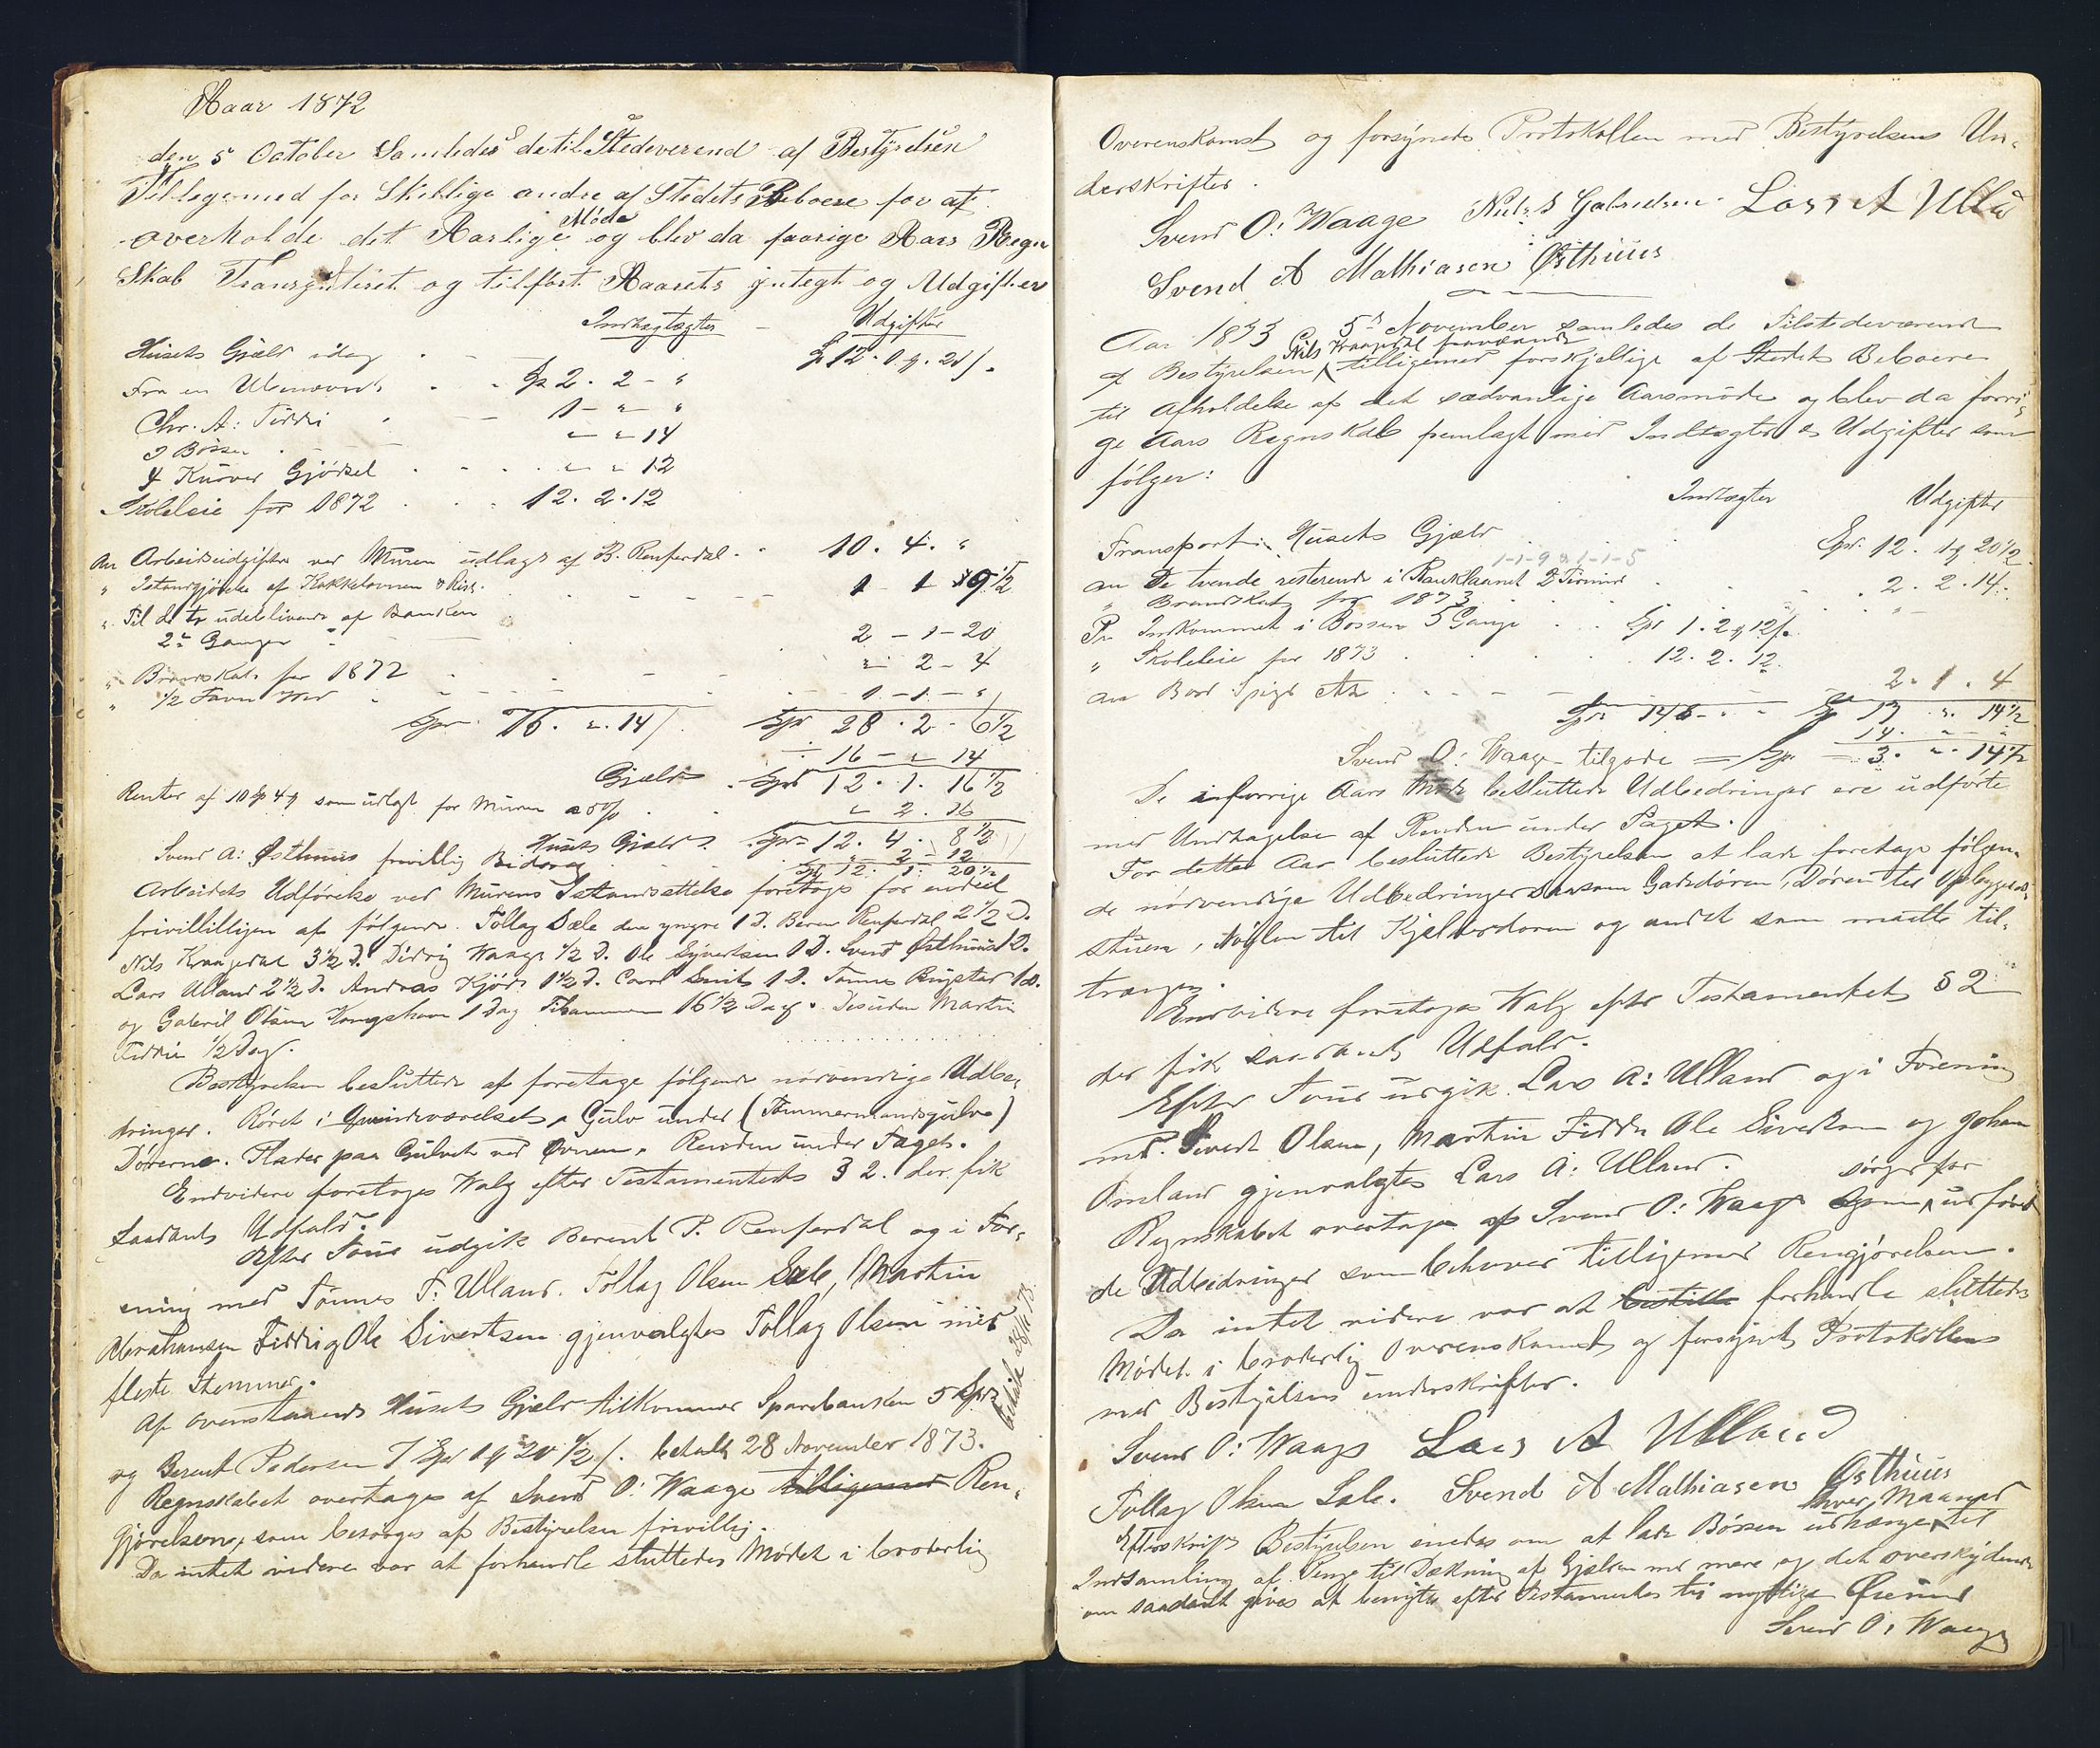 Aaar 1872
den 5 October Samledes de til Stedeverend af Bestyrelsen
Tillegemed for Skitlige andre af Stedets Beboere for at
overholde det Aarlige Møde og blev da faarige Aars Regn
Skab Transputeret og tilført Aarets jntegt og Udgifter
Indtægtægter Udgifter
Husets Gjæld idag 12 . 1 . 21
Fra en Ubenævnt 2 . 2 - "
Chr. A: Fidtri 1 - " - "
3 Bøsser " " 14
4 Kurver Gjødsel " " 12
Skoleleie for 1872 12 . 2 . 12
An Arbeidsudgifter ved Muren udlagt af B. Renferdal 10 . 4 . "
" Istandgjørelse af Kakkelovnen & Rist. 1 1 9 1/2
" Til de to udeblivende af Banken
2de Ganger 2 - 1 - 20
" Brandskat for 1872 " 2 - 4
" 1/2 Favn Ved 1 - 1 - "
Spr. 16 . " . 14 Spr 28 . 2 - 6 1/2
÷ 16 - " 14
Gjæld Spd 12 . 1 . 16 1/2
Renter af 10 Sp 4 som udlagt for Muren a 5% " 2 . 16
Husets Gjæld Spr 12 . 4 . 8 1/2
Svend A: Østhuus frivillig Bidrag " 2 - 12
Sp 12 . 1 . 20 1/2
Arbeidets Udførelse ved Murens Istandsættelse foretoges for endeel
frivillilligen af følgende. Tollag Sæle den yngre 1 D. Berent Renferdal 2 1/2 D.
Nils Kraagedal 3 1/2 D. Didrig Waage 1/2 D. Ole Syvertsen 1 D. Svend Østhuus 1 D.
Lars Ulland 2 1/2 D. Andreas Kjørd 1 1/2 D. Carl Smit 1 D. Tønnes Rugstad 1 D.
og Gabriel Olsen Kongshavn 1 Dag Tilsammen 16 1/2 Dag. Desuden Martin
Fidtri 1/2 Dag.
Bestyrelsen besluttede at foretage følgende nødvendige Udbe-
dringer. Røret i Qvindeværelset, Gulv under (Tømmermandsgulve)
Dørerne. Plader paa Gulvet ved Ovnen, Renden under Taget.
Endvidere foretoges Valg efter Testamentets § 2. der fik
saadant Udfald.
Efter Tour udgik Berent P. Renferdal og i For-
ening med Tønnes T: Ulland. Tollag Olsen Sæle, Martin
Abrahamsen Fidtri og Ole Sivertsen gjenvalgtes Tollag Olsen med
fleste Stemmer.
Af ovenstaaende Husets Gjæld tilkommer Sparebanken 5 Spd
betalt 28/11 73
og Berent Pedersen 7 Spr 1 20 1/2 . betalt 28 November 1873.
Regnskabet overtages af Svend O: Waage tilligemed Ren-
gjørelsen, som besørges af Bestyrelsen frivillig.
Da intet videre var at forhandle sluttedes Mødet i broderlig
Overenskomst og forsynede Protokollen med Bestyrelsens Un-
derskrifter.
Svend O: Waage Niels S Gabrielsen Lars A Ulla
Svend A Mathiasen Østhuus
Aar 1873 5te November samledes de Tilstedeværende
af Bestyrelsen, Nils Kraagedal fraværende tilligemed forskjellige af Stedets Beboere
til Afholdelse af det sædvanlige Aarsmøde og blev da forri-
ge Aars Regnskab fremlagt med Indtægter og Udgifter som
følger:
Indtægter Udgifter
Transport i Husets Gjæld Spr. 12 . 1 20 1/2
1-1-9 & 1-1-5
an De tvende resterende i Banklaanet 2 Terminer 2 . 2 . 14
" Brandskat for 1873 "
Pr Indkommet i Bøssen 5 Gange Spr 1 . 2 12
" Skoleleie for 1873 12 . 2 . 12
an Bord Spiger etc 2 . 1 . 4
Spr 14 - " - " 17 . " . 14 1/2
14 . " - "
Svend O: Waage tilgode = Spr 3 . " . 14 1/2
De i forrige Aars Møde besluttede Udbedringer ere udførte
med Undtagelse af Renden under Taget.
For dette Aar besluttede Bestyrelsen at lade foretage følgen-
de nødvendige Udbedringer saasom Gadedøren, Døren til Opbyggelses-
stuen, Nøglen til Kjelderdøren og andet som maatte til-
trænges.
Endvidere foretoges Valg efter Testamentets § 2
der fik saadant Udfald.
Efter Tour udgik Lars A: Ulland og i Forening
med. Sivert Olsen, Martin Fidtri Ole Sivertsen og Johan
Omland gjenvalgtes Lars A: Ulland.
Regnskabet overtages af Svend O: Waage som sørger for udførte
de Udbedringer som behøves tilligemed Rengjørelsen.
Da intet videre var at bestille forhandle sluttedes
Mødet i broderlig Overenskomst og forsynet Protokollen
med Bestyrelsens underskrifter.
Svend O: Waage Lars A Ulland
Tollag Olsen Sæle. Svend A Mathiasen Østhuus
Efterskrift Bestyrelsen enedes om at lade Bøssen udhænge hver Maaned til
Indsamling af Penge til Dækning af Gjælden med mere og det overskydende
om saadant gives at benytte efter Testamentets til nyttige Øiemed
Svend O: Waage